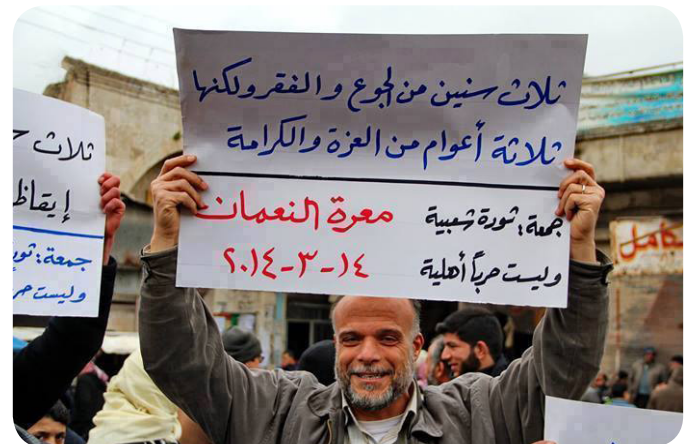 ثلاث سنين من الجوع و الفقر ولكنها
ثلاثة أعوام من العزة والكرامة
جمعة: ثورة شعبية
وليست حرباً أهلية
معرة النعمان
١٤-٣-٢٠١٤
ثلاث
إيقاظ
جمعة: ثور
وليست حر